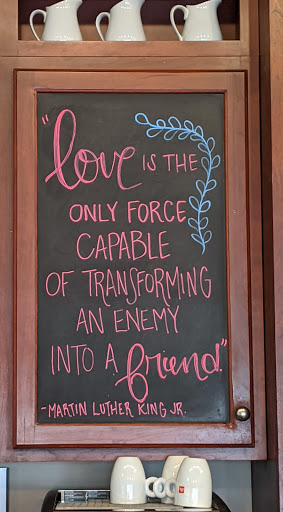 "love IS THE
ONLY FORCE
CAPABLE
OF TRANSFORMING
AN ENEMY
INTO A friend."
-MARTIN LUTHER KING JR.